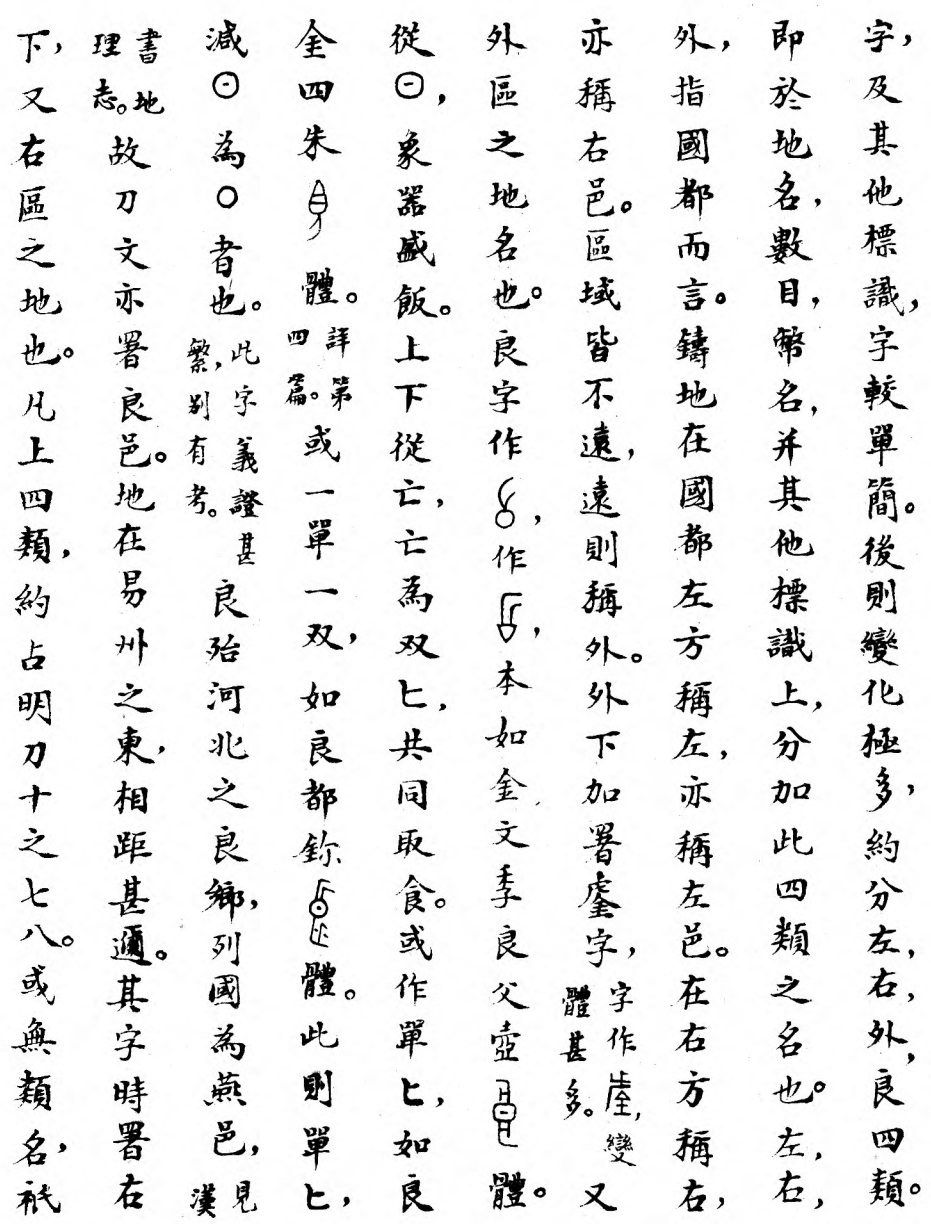 字，及其他標識，字較單簡。後則變化極多，約分左，右，外，良四類。
即於地名，數目，幣名，并其他標識上，分加此四類之名也。左，右，
外，指國都而言。鑄地在國都左方稱左，亦稱左邑。在右方稱右，
亦稱右邑。區域皆不遠，遠則稱外。外下加署字，字作，變體甚多。又
外區之地名也。良字作，作，本如金文季良父壺體。
從⊖，象器盛飯。上下從亡，亡為双匕，共同取食。或作單匕，如良
金四朱體。詳第四篇。或一單一双，如良都鉨體。此則單匕，
減⊙為〇者也。此字義證甚繁，別有考。良殆河北之良鄉，列國為燕邑，見漢
書地理志。故刀文亦署良邑。地在易州之東，相距甚邇。其字時署右
下，又右區之地也。凡上四類，約占明刀十之七八。或無類名，祇